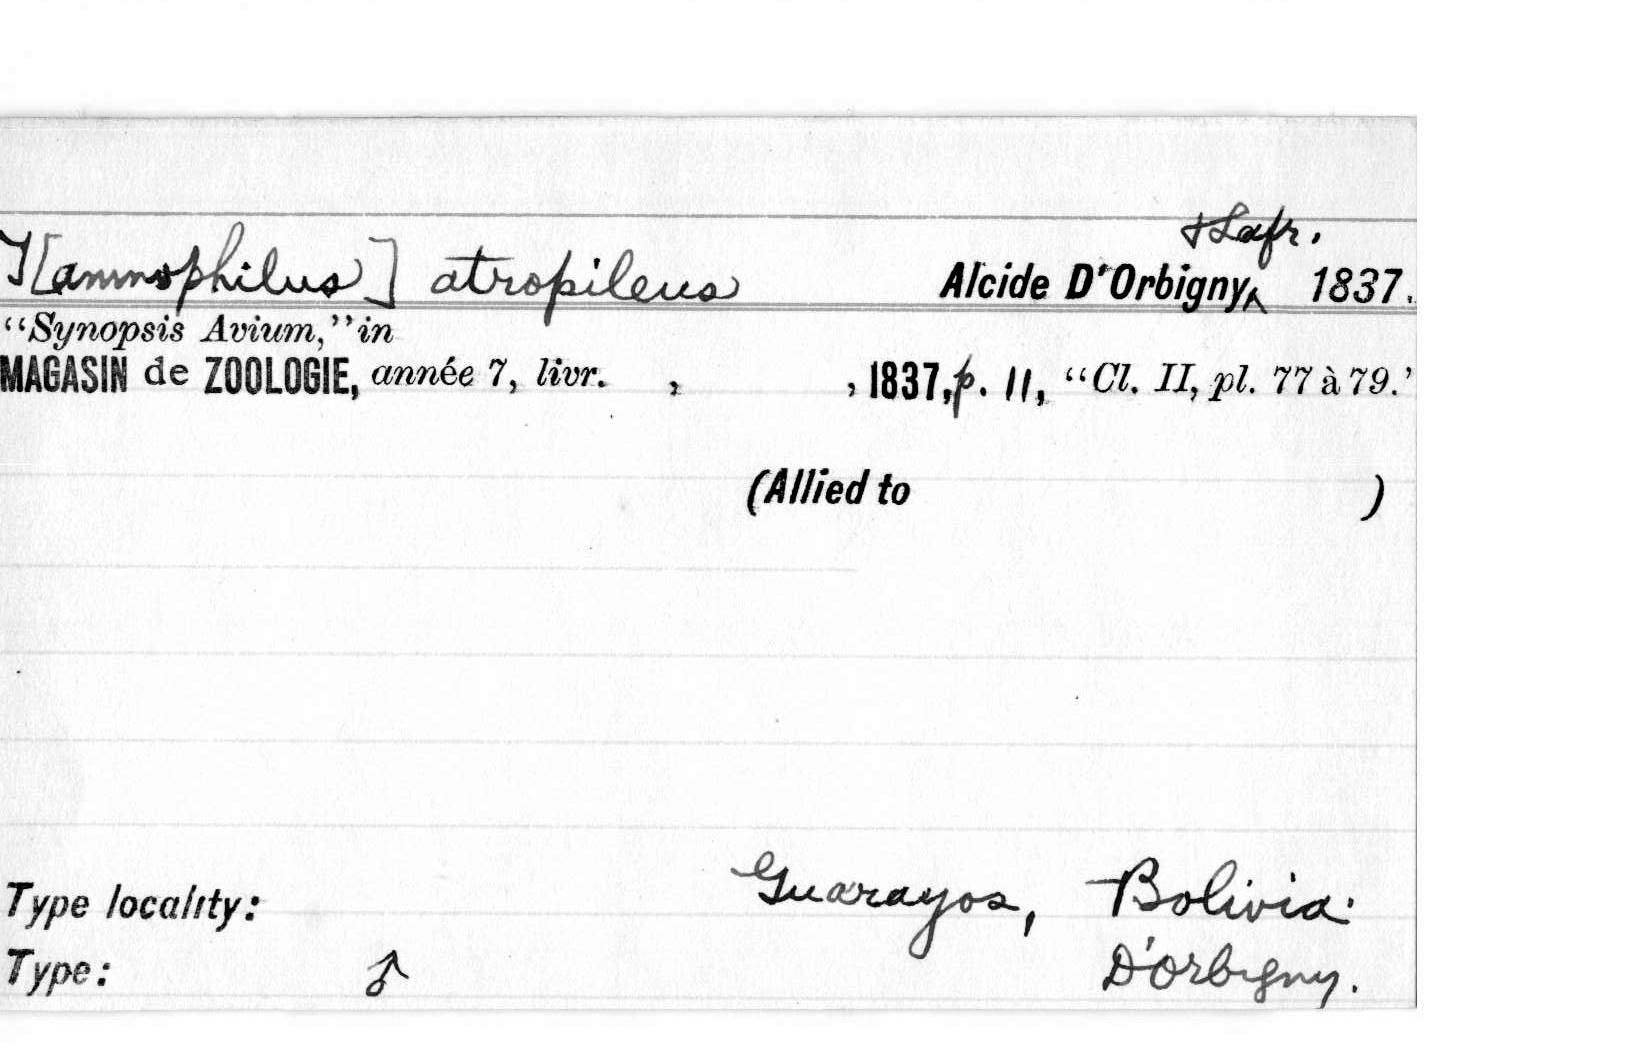 T[amnophilus] atropileus Alcide D'Orbigny & Lafr. 1837.
"Synopsis Avium," in
MAGASIN de ZOOLOGIE, année 7, livr. , , 1837, p. 11, "Cl. II, pl. 77 à 79.'
(Allied to )
Type locality: Guarayos, Bolivia.
Type: ♂ D'Orbigny.